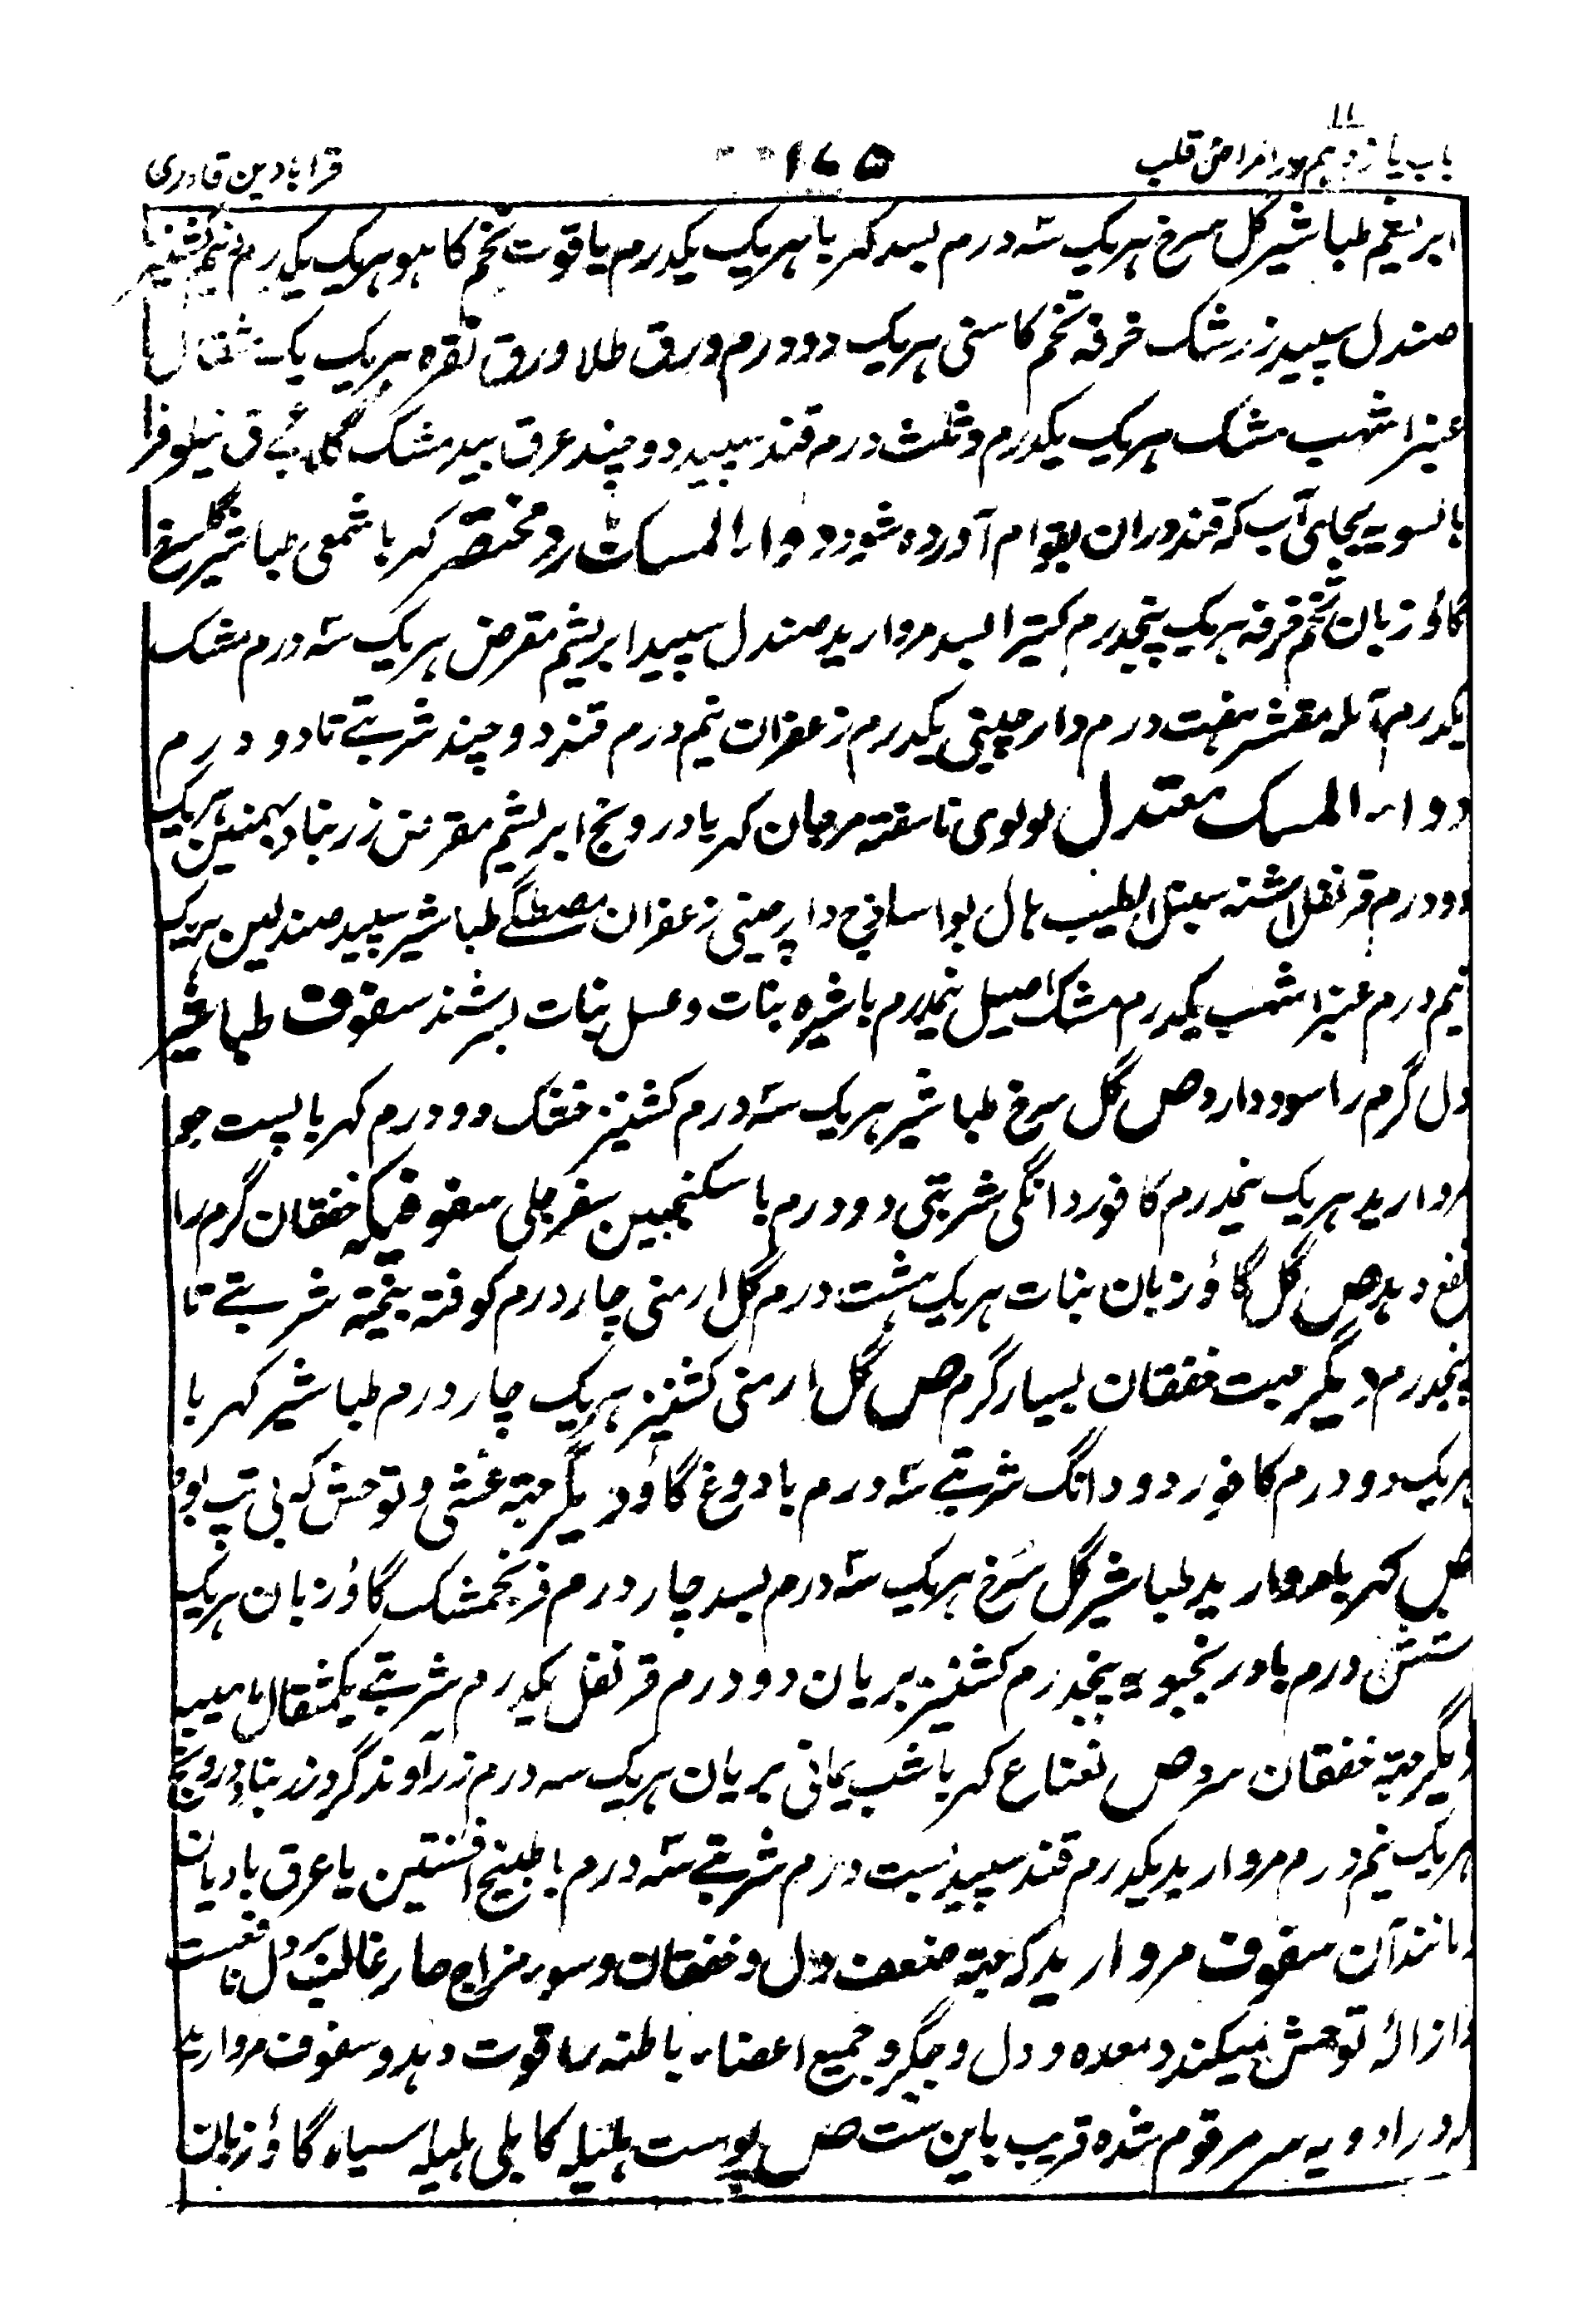 باب یازدهم در امراض قلب ۱۷۵ قرابادین قادری
ابریشم طباشیر گل سرخ هریک سه درم بسد کهربا هریک یکدرم یاقوت تخم کاهو هریک یکدرم نیم کشنیز
صندل سپید زرشک خرفه تخم کاسنی هریک دو درم ورق طلا ورق نقره هریک یک مثقال
عنبر اشهب مشک هریک یکدرم و ثلث درم قند سپید دو چند عرق بیدمشک گلاب عرق نیلوفر
بالسویه بجای آب که قند دران بقوام آورده شود دواء المسک بارد مختصر کهربا شمعی طباشیر گل سرخ
گاؤزبان تخم خرفه هریک پنجدرم کتیرا بسد مروارید صندل سپید ابریشم مقرض هریک سه درم مشک
یکدرم آمله مقشر هفت درم دارچینی یکدرم زعفران نیم درم قند دو چند شربتے تا دو درم
دواء المسک معتدل لولوی ناسفته مرجان کهربا درونج ابریشم مقرض زرنباد بهمنین هریک
دو درم قرنفل اشنه سنبل الطیب هال بوا ساذج دارچینی زعفران مصطگے طباشیر سپید صندلین هریک
نیم درم عنبر اشهب یکدرم مشک اصیل نیمدرم باشیره نبات و عسل نبات بسرشند سفوف طباشیر
دل گرم را سود دارد ص گل سرخ طباشیر هریک سه درم کشنیز خشک دو درم کهربا پست جو
مروارید هریک نیمدرم کافور دانگی شربتی دو درم با سکنجبین سفرجلی سفوفیکه خفقان گرم را
نفع دهد ص گل گاؤزبان نبات هریک هشت درم گل ارمنی چار درم کوفته بیخته شربتے تا
پنجدرم دیگر جهت خفقان بسیار گرم ص گل ارمنی کشنیز هریک چار درم طباشیر کهربا
هریک دو درم کافور دو دانگ شربتے سه درم با دوغ گاؤ دیگر جهة غشی و توحش که بی تپ بود
ص کهربا مروارید طباشیر گل سرخ هریک سه درم بسد چار درم فرنجمشک گاؤزبان هریک
شش درم بادرنجبویه پنجدرم کشنیز بریان دو درم قرنفل یکدرم شربتے یکمثقال با سیب
دیگر جهة خفقان سرد ص نعناع کهربا شب یمانی بریان هریک سه درم زرآوند گرد زرنباد درونج
هریک نیم درم مروارید یکدرم قند سپید بست درم شربتے سه درم با طبیخ افسنتین یا عرق بادیان
و مانند آن سفوف مروارید که جهة ضعف دل و خفقان و سوء مزاج حار غالب بر دل نافعست
و ازالهٔ توحش میکند و معده و دل و جگر و جمیع اعضاء باطنه را قوت دهد و سفوف مروارید
که در ادویه سر مرقوم شده قریب باین ست ص پوست هلیله کابلی هلیله سیاه گاؤزبان